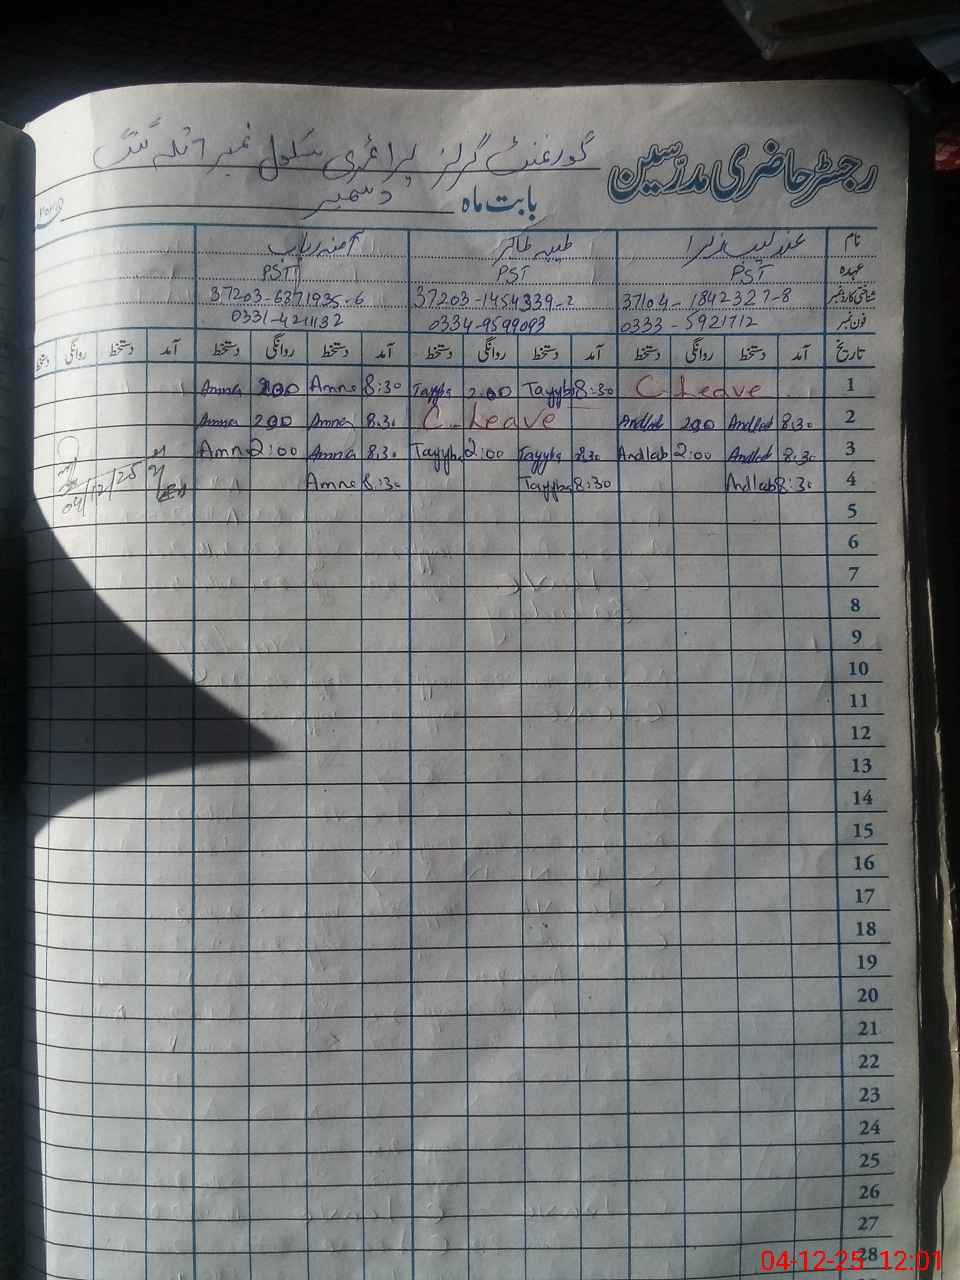 رجسٹر حاضری مدرسین گورنمنٹ گرلز پرائمری سکول نمبر 7 تلہ گنگ
بابت ماہ دسمبر
نام عندلیب زہرا طیبہ طاہر آمنہ رباب
عہدہ PST PST PST
شناختی کارڈ نمبر 37104-1842327-8 37203-1454339-2 37203-6871935-6
فون نمبر 0333-5921712 0334-9599093 0331-4211132
تاریخ آمد دستخط روانگی دستخط آمد دستخط روانگی دستخط آمد دستخط روانگی دستخط آمد دستخط روانگی دستخط
1 C-Leave 8:30 Tayyba 2:00 Tayyba 8:30 Amna 2:00 Amna
2 8:30 Andlab 2:00 Andlab C-Leave 8:30 Amna 2:00 Amna
3 8:30 Andlab 2:00 Andlab 8:30 Tayyba 2:00 Tayyba 8:30 Amna 2:00 Amna
4 8:30 Andlab 8:30 Tayyba 8:30 Amna
04/12/25
5
6
7
8
9
10
11
12
13
14
15
16
17
18
19
20
21
22
23
24
25
26
27
28
04-12-25 12:01